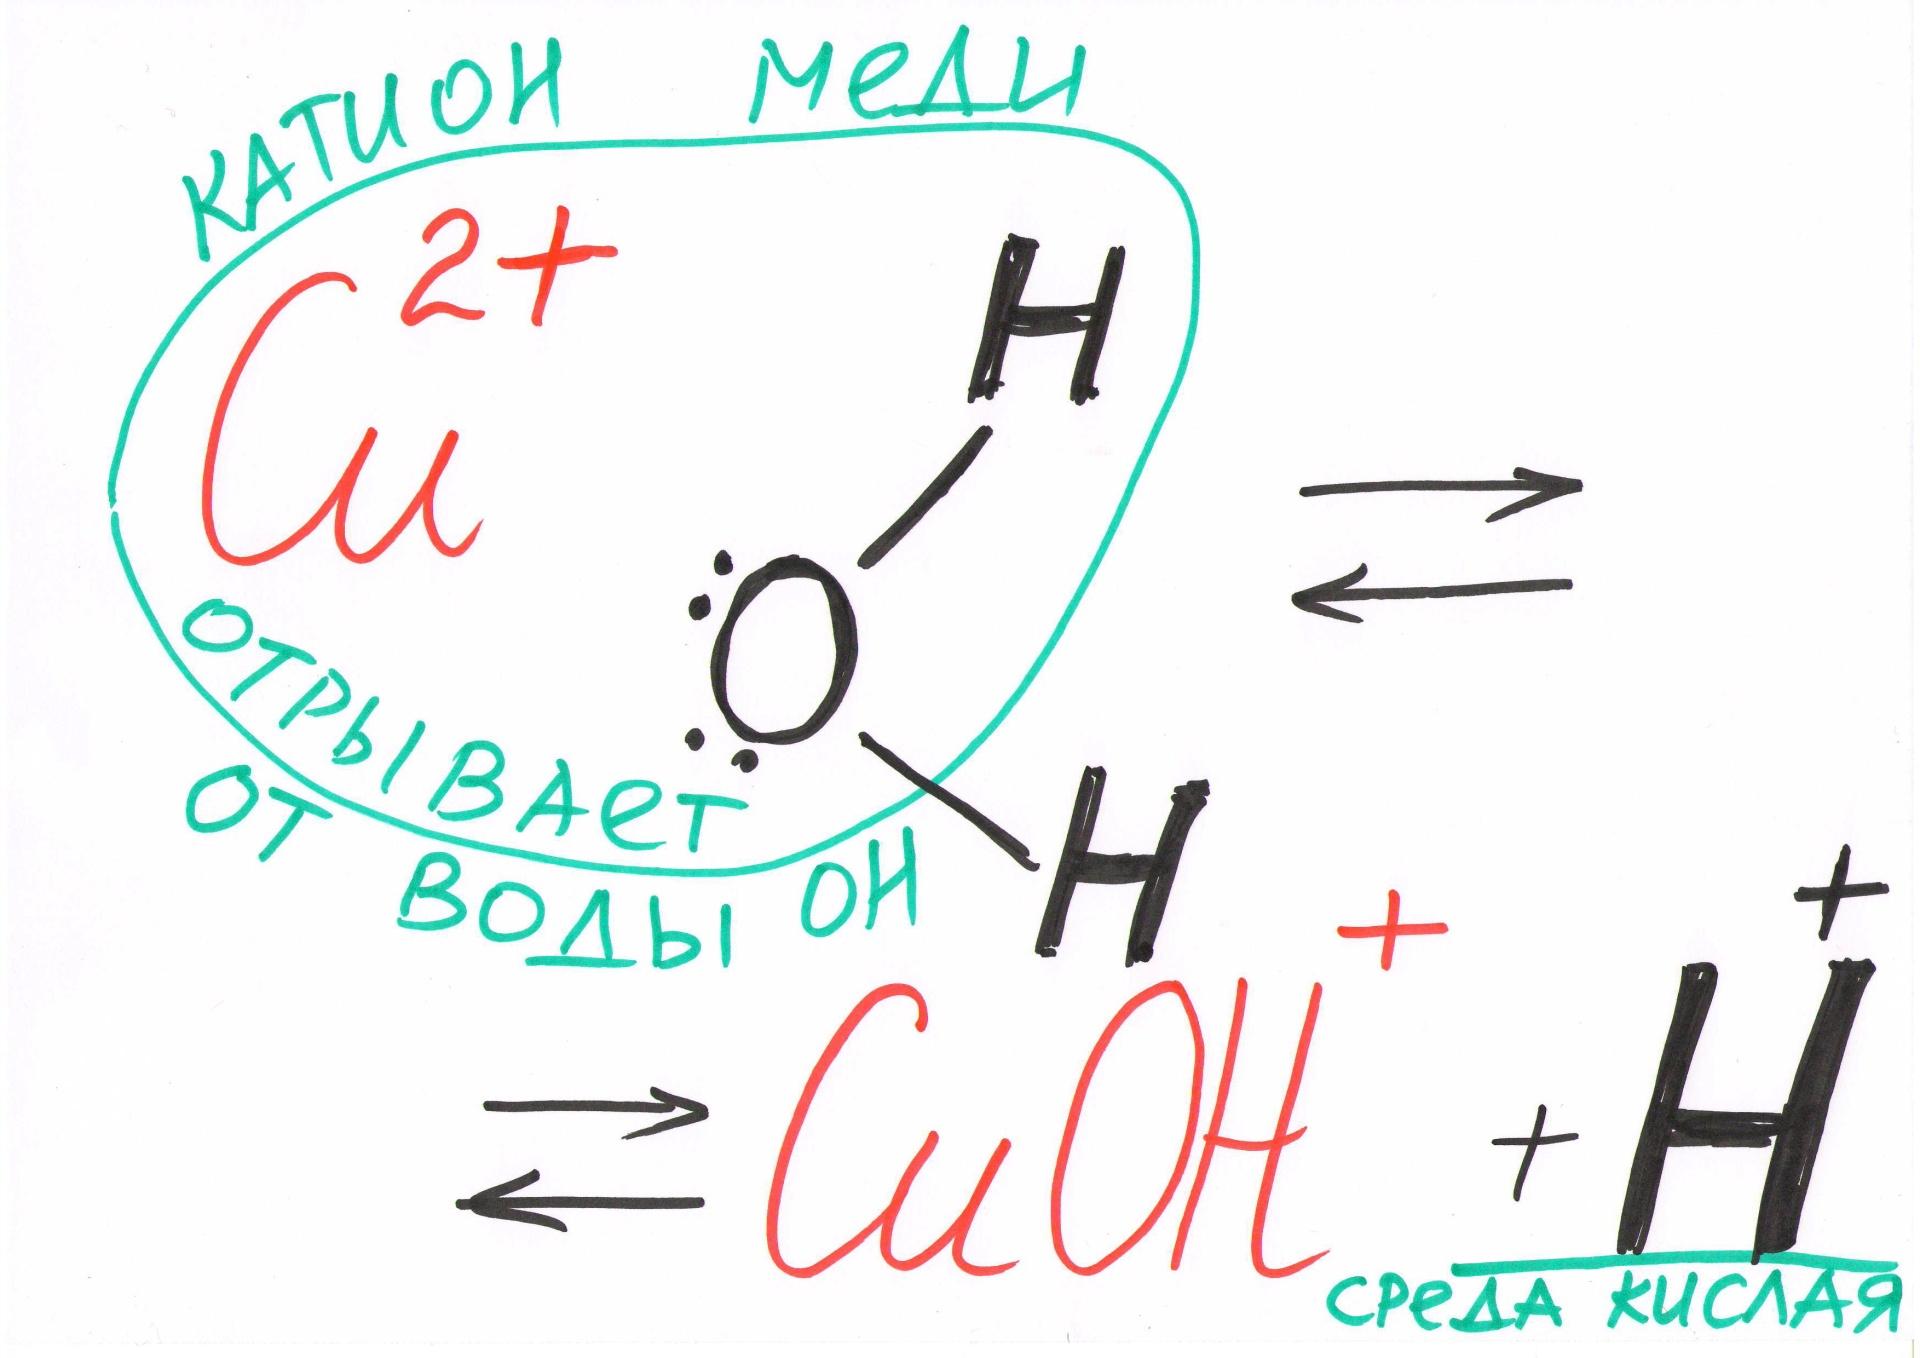 КАТИОН МеДИ
Cu²⁺
H
O
H
⇌
ОТРЫВАеТ
ОТ ВОДЫ ОН
⇌ CuOH⁺ + H⁺
СРеДА КИСЛАЯ